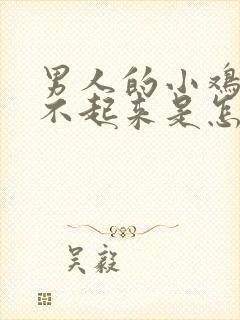 男人的小鸡
不起来是怎
吴毅